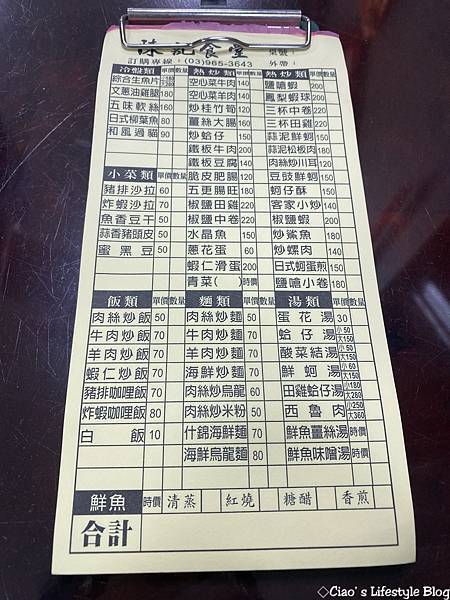 陳記食堂
桌號：
訂購專線：(03)965-3643
外帶：
冷盤類 單價 數量
綜合生魚片
文蔥油雞腿 180
五味軟絲 160
日式柳葉魚 80
和風過貓 90
小菜類 單價 數量
豬排沙拉 60
炸蝦沙拉 70
魚香豆干 50
蒜香豬頭皮 50
蜜黑豆 50
熱炒類 單價 數量
空心菜牛肉 140
空心菜羊肉 140
炒桂竹筍 120
薑絲大腸 160
炒蛤仔 150
鐵板牛肉 200
鐵板豆腐 140
脆皮肥腸 120
五更腸旺 180
椒鹽田雞 220
椒鹽中卷 220
水晶魚 150
蔥花蛋 60
蝦仁滑蛋 200
青菜( ) 時價
熱炒類 單價 數量
鹽嗆蝦 200
鳳梨蝦球 200
三杯中卷 220
三杯田雞 220
蒜泥鮮蚵 150
蒜泥松板肉 180
肉絲炒川耳 120
豆豉鮮蚵 150
蚵仔酥 150
客家小炒 140
椒鹽蝦 200
炒鯊魚 180
炒螺肉 140
日式蚵蛋煎 150
鹽嗆小卷 180
飯類 單價 數量
肉絲炒飯 50
牛肉炒飯 70
羊肉炒飯 70
蝦仁炒飯 70
豬排咖哩飯 70
炸蝦咖哩飯 80
白飯 10
麵類 單價 數量
肉絲炒麵 50
牛肉炒麵 70
羊肉炒麵 70
海鮮炒麵 70
肉絲炒烏龍 60
肉絲炒米粉 50
什錦海鮮麵 70
海鮮烏龍麵 80
湯類 單價 數量
蛋花湯 30
蛤仔湯 小50 大150
酸菜結湯 小50 大150
鮮蚵湯 小60 大150
田雞蛤仔湯 小180 大280
西魯肉 小250 大360
鮮魚薑絲湯 時價
鮮魚味噌湯 時價
鮮魚 時價 清蒸 紅燒 糖醋 香煎
合計
◇Ciao's Lifestyle Blog